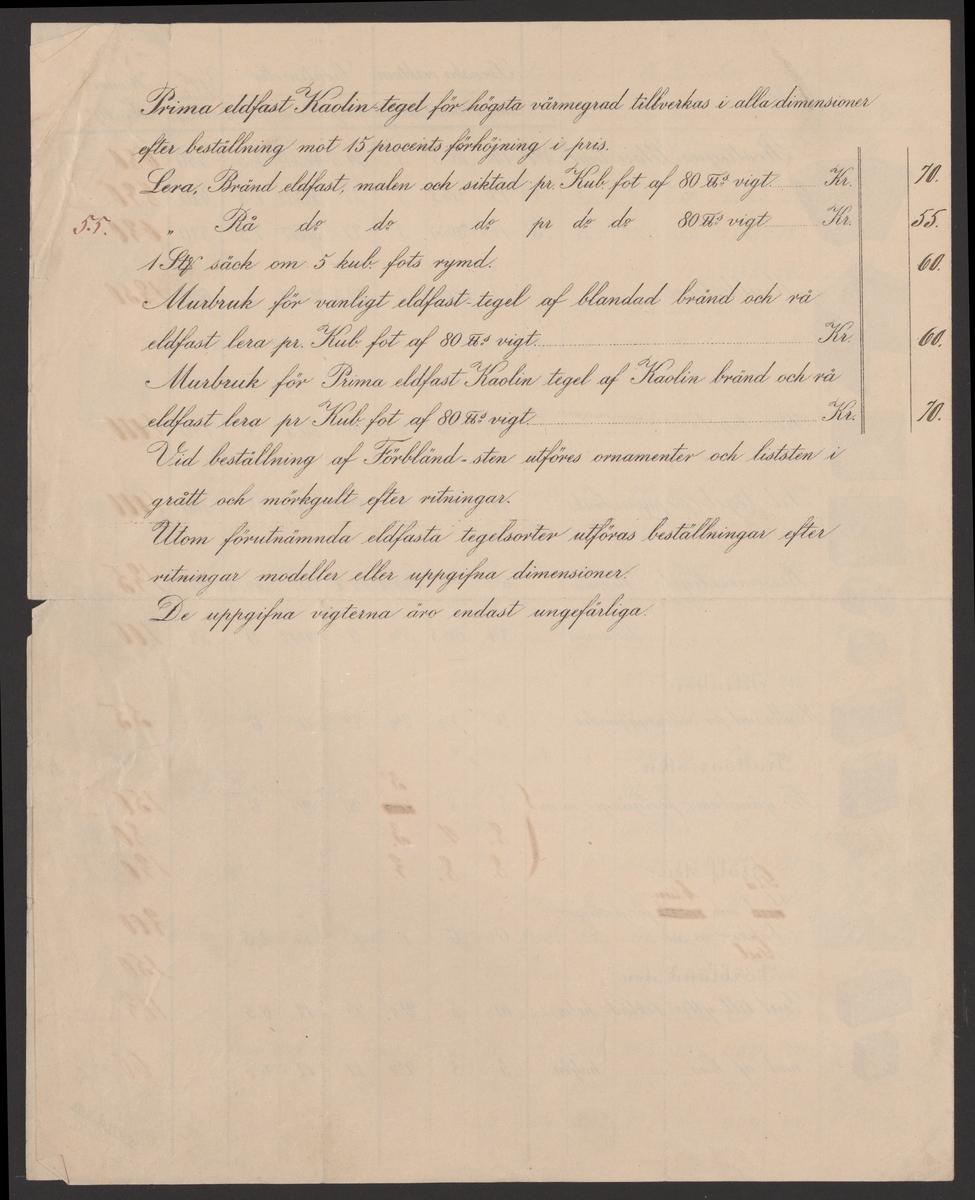 Prima eldfast Kaolin-tegel för högsta värmegrad tillverkas i alla dimensioner
efter beställning mot 15 procents förhöjning i pris.
Lera, Bränd eldfast, malen och siktad pr. Kub. fot af 80 ℔s vigt Kr. 70.
55. „ Rå do do do pr do do 80 ℔s vigt Kr. 55.
1 Stk säck om 5 kub. fots rymd. 60.
Murbruk för vanligt eldfast-tegel af blandad bränd och rå
eldfast lera pr. Kub. fot af 80 ℔s vigt. Kr. 60.
Murbruk för Prima eldfast Kaolin tegel af Kaolin bränd och rå
eldfast lera pr Kub. fot af 80 ℔s vigt. Kr. 70.
Vid beställning af Förbländ-sten utföres ornamenter och liststen i
grått och mörkgult efter ritningar.
Utom förutnämnda eldfasta tegelsorter utföras beställningar efter
ritningar modeller eller uppgifna dimensioner.
De uppgifna vigterna äro endast ungefärliga.